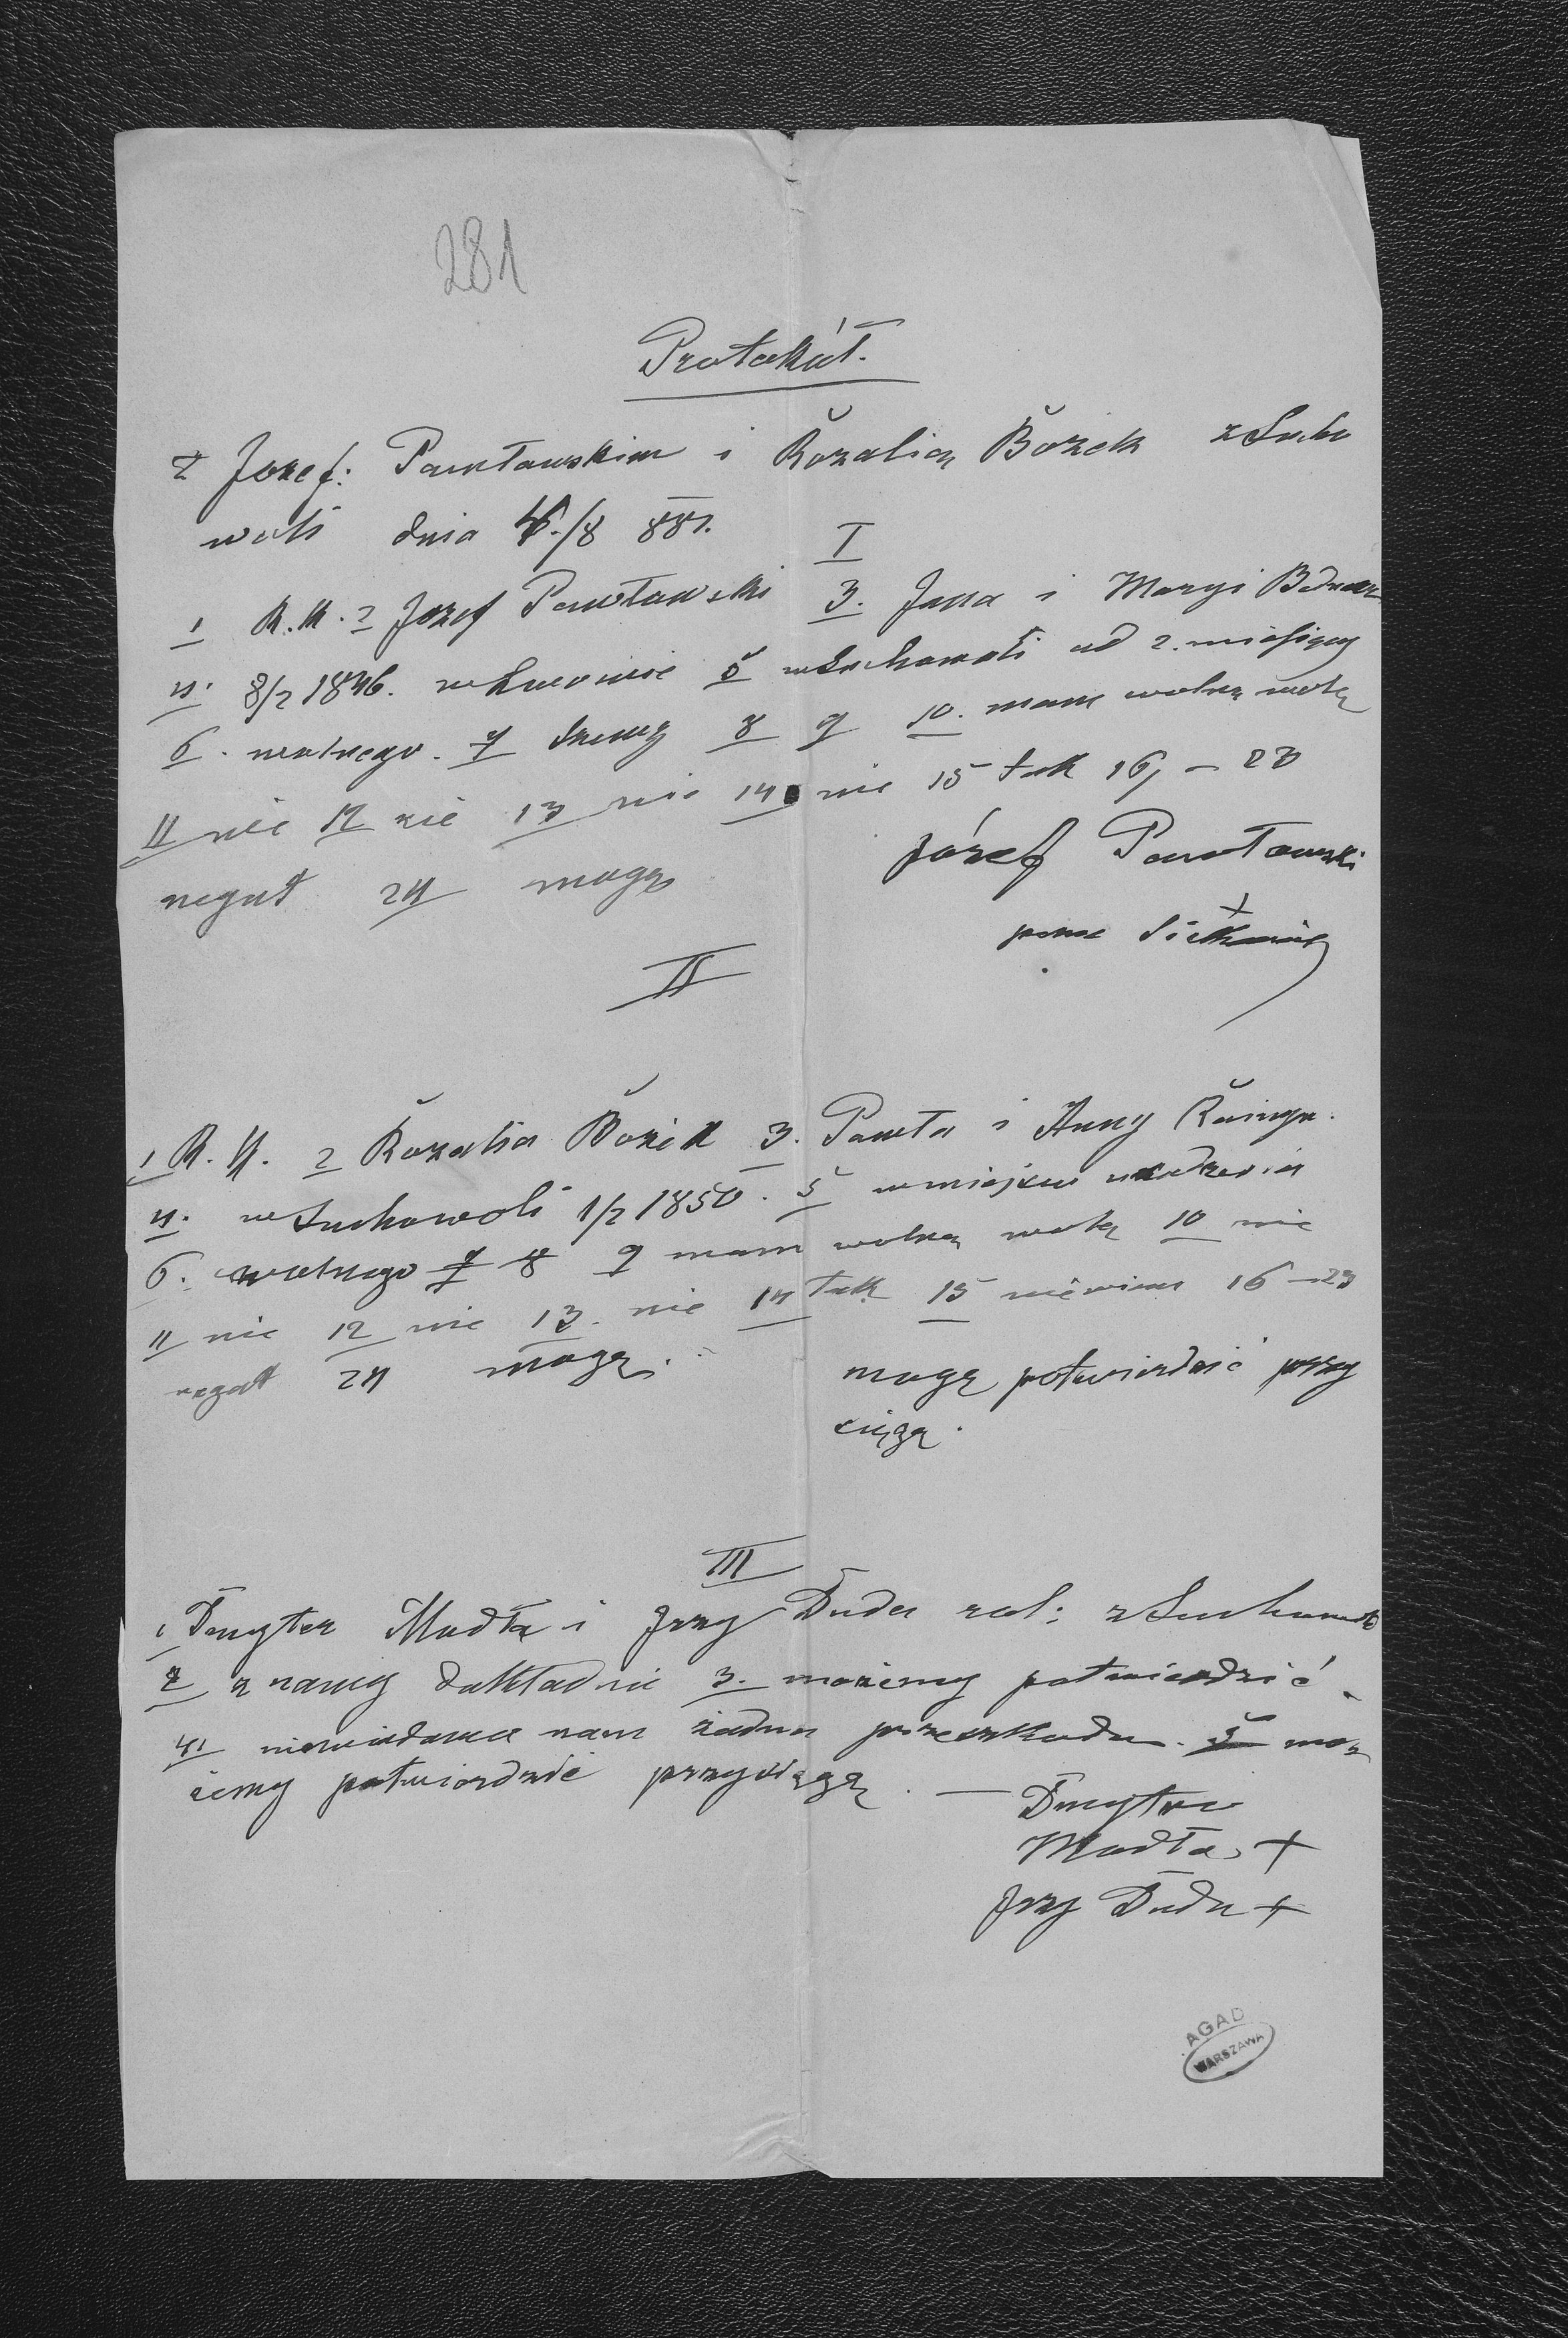 281
Protokół.
z Józef: Pawłowskim i Rozalią Bożek z Sucho
woli dnia /8 881.
I
1 R.K. 2 Józef Pawłowski 3. Jana i Maryi
4. 8/2 1846. we Lwowie 5 w Suchowoli od 2. miesięcy
6. wolnego. 7 8 9 10. mam wolną wolę
11 nie 12 nie 13 nie 14 nie 15 tak 16, – 23
negat 24 mogę
Józef Pawłowski
+
II
1 R. K. 2 Rozalia Bożek 3. Pawła i Anny
4. w Suchowoli 1/2 1850. 5 w miejscu urodzenia
6. wolnego 7 8 9 mam wolną wolę 10 nie
11 nie 12 nie 13. nie 14 tak 15 niewiem 16 – 23
negat 24 mogę.
mogę potwierdzić przy
sięgą.
III
1 Dmyter Mudła i Jrzy Duda rol: z Suchowoli
2 znamy dokładnie 3. możemy potwierdzić
4. niewiadoma nam żadna przeszkoda. 5 mo
żemy potwierdzić przysięgą. – Dmytro
Mudła +
Jrzy Duda +
AGAD
WARSZAWA